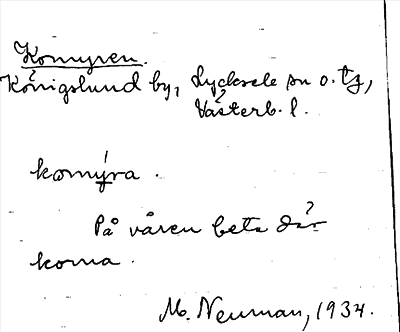 Komyren.
Königslund by, Lycksele sn o. tg,
Västerb. l.
komy̅ra.
På våren beta där
korna.
M. Neuman, 1934.